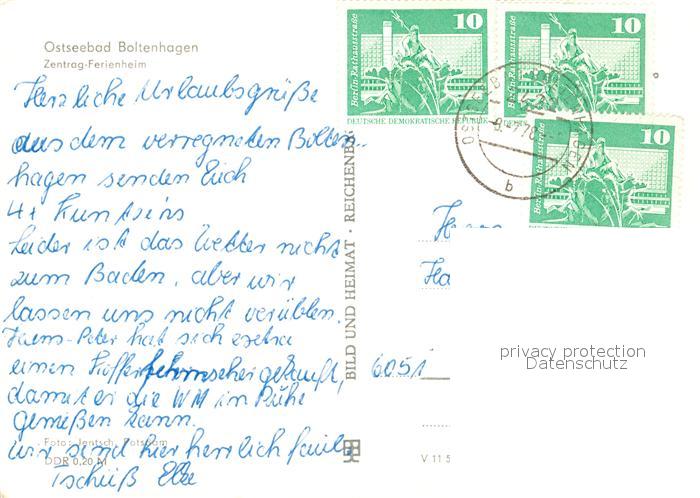 Ostseebad Boltenhagen
Zentrag-Ferienheim
Herzliche Urlaubsgrüße
aus dem verregneten Bolten-
hagen senden Euch
4x
Leider ist das Wetter nicht
zum Baden, aber wir
lassen uns nicht verüblen.
Hans-Peter hat sich extra
einen Kofferfernseher gekauft,
damit er die WM in Ruhe
genießen kann.
wir sind hier herrlich faul.
Tschüß Elke
Foto: Jentsch, Potsdam
DDR 0,20 M
BILD UND HEIMAT · REICHENB
V 11 5
10
Berlin-Rathausstraße
DEUTSCHE DEMOKRATISCHE REPUBLIK
10
Berlin-Rathausstraße
Berlin-Rathausstraße
b
Ha
6051
privacy protection
Datenschutz